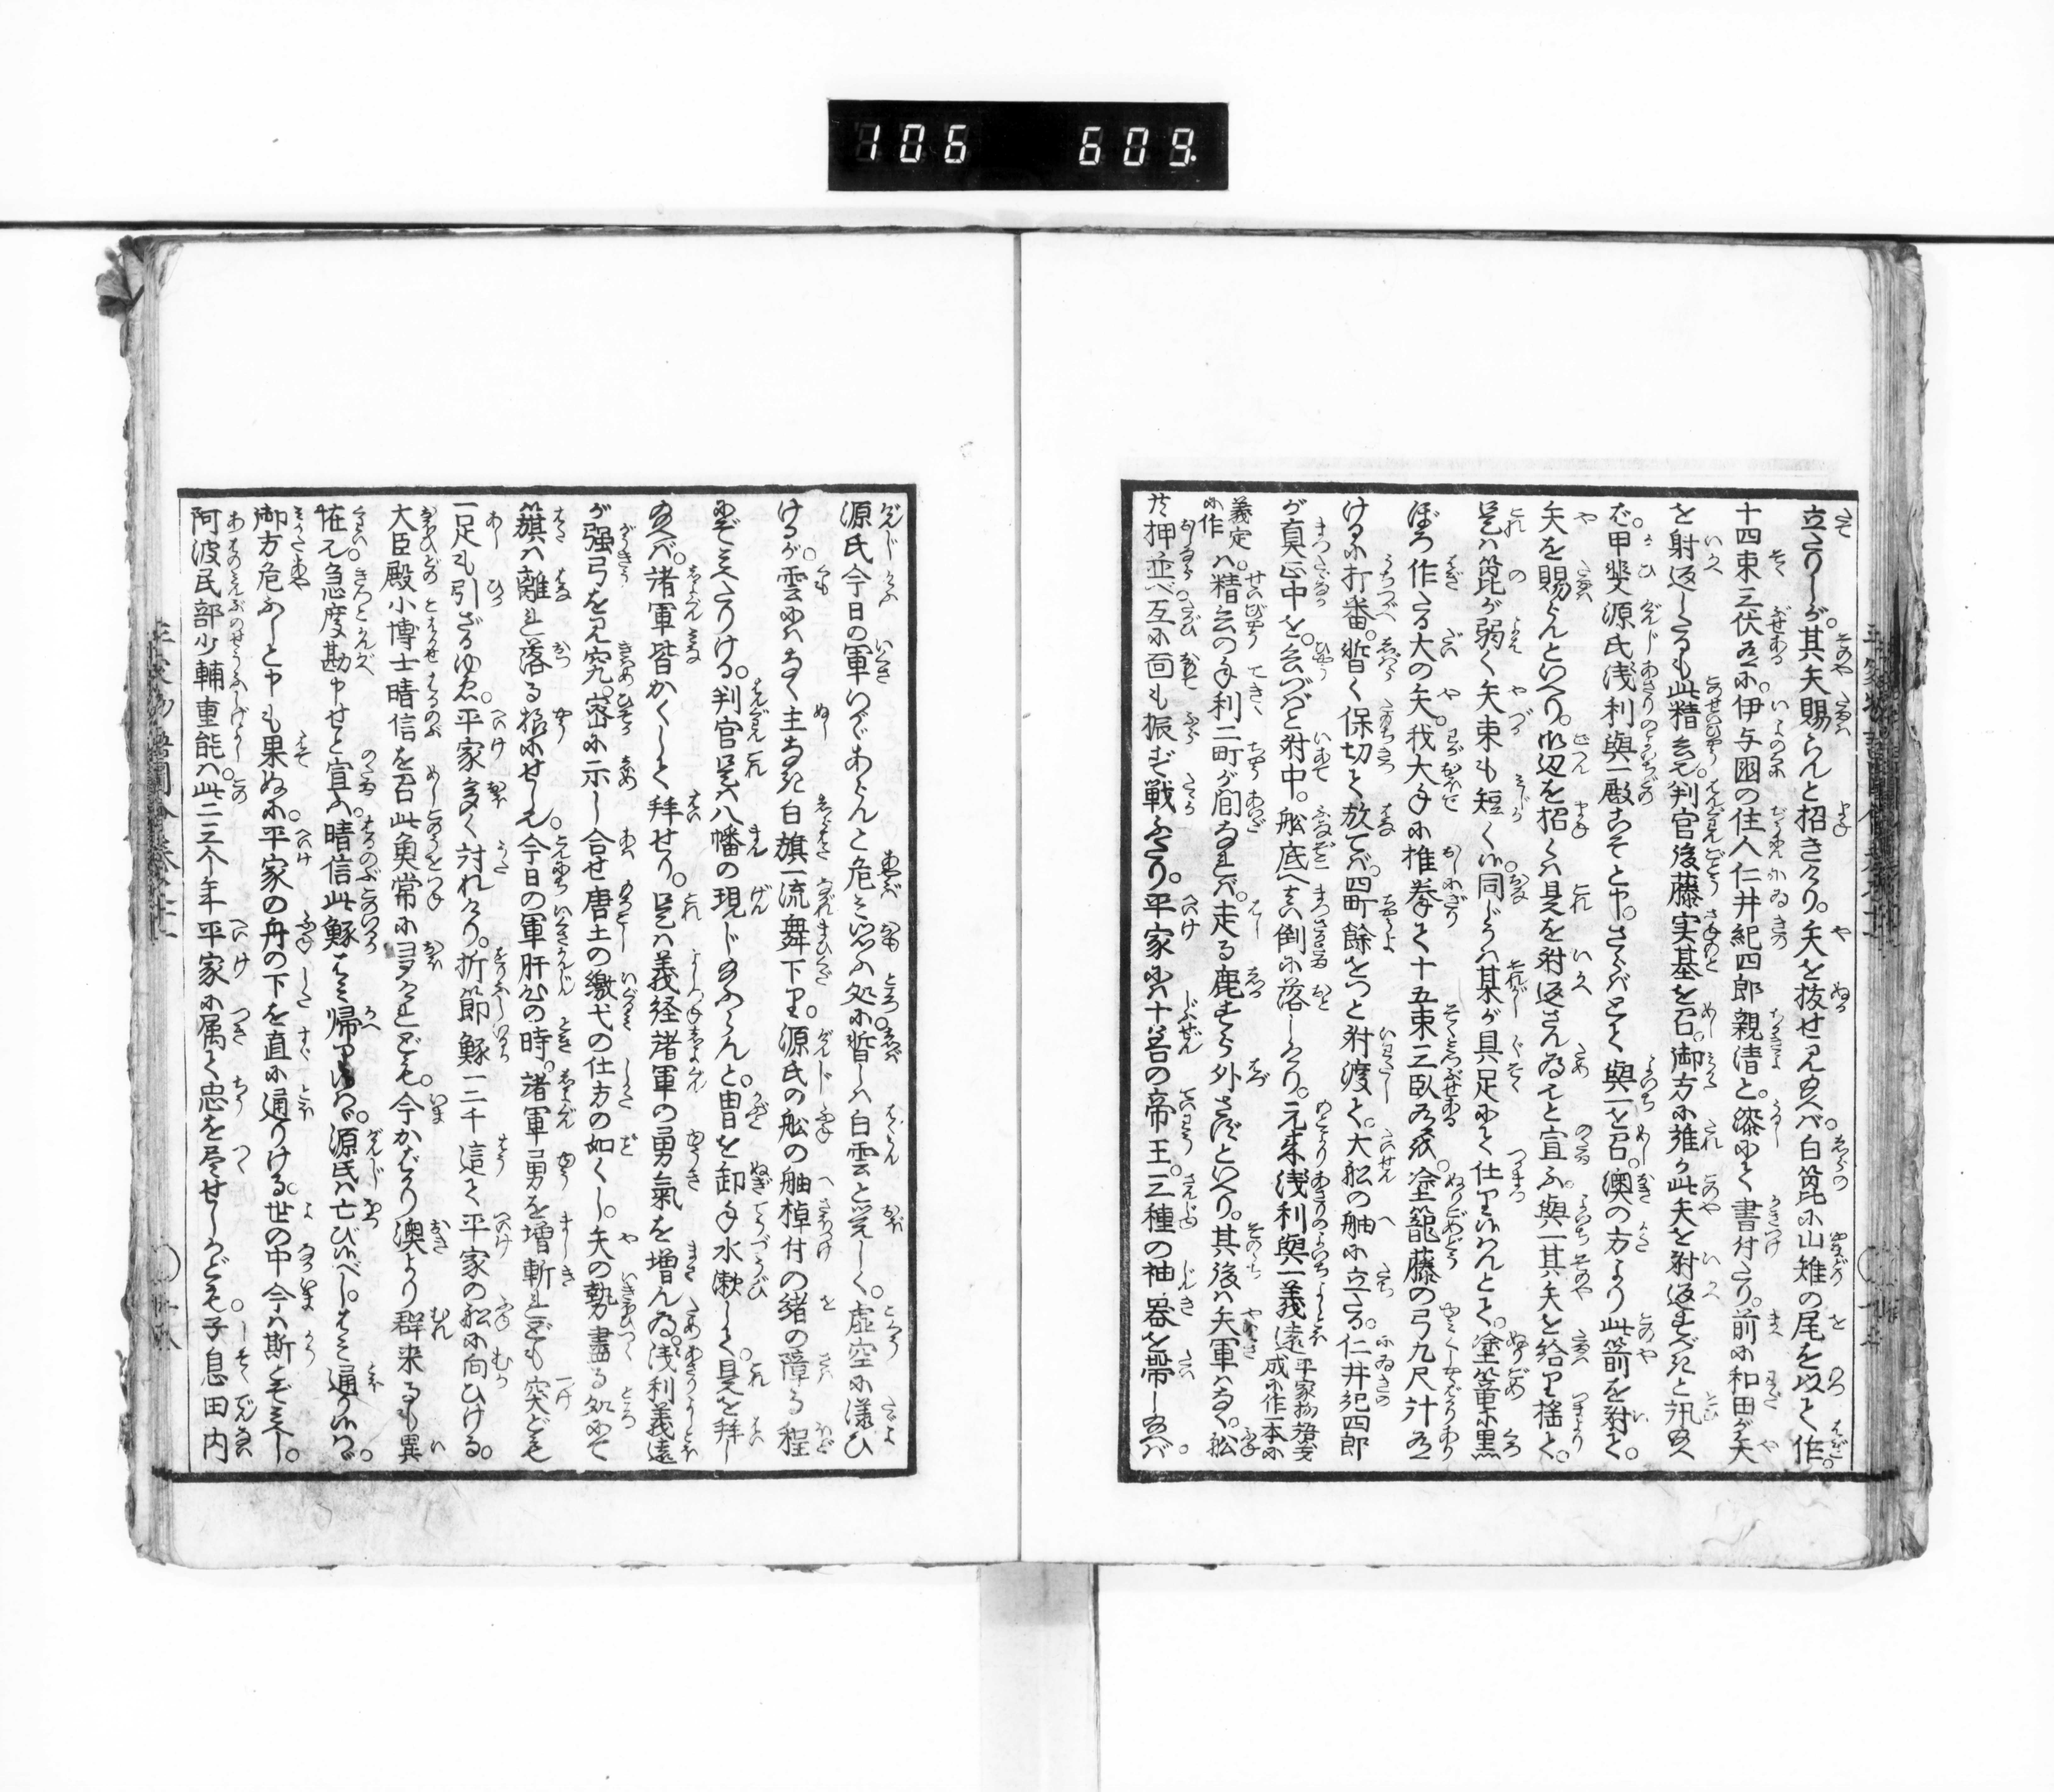 106 609
立たりしが。其矢賜らんと招きけり。矢を抜せ見給へバ。白箆に山雉の尾を以て作
十四束三伏有に。伊与国の住人仁井紀四郎親清と。漆にて書付たり。前に和田が矢
を射返したるも此精兵。判官後藤実基を召。御方に誰か此矢を射返すべきと訊給へ
ば。甲斐源氏浅利與一殿こそと申。さらばとて與一を召。澳の方より此箭を射て。
矢を賜らんといへり。御辺を招くハ是を射返さん為也と宣ふ。與一其矢を給り揺て。
是ハ箆が弱く矢束も短く候。同じうハ某が具足にて仕り候はんとて。塗箆に黒
ぼろ作たる大の矢。我大手に推拳て十五束三臥有を。塗籠藤の弓九尺計有
けるに打番。暫く保切て放てば。四町餘をつと射渡て。大舩の舳に立たる。仁井紀四郎
が真正中を。兵づばと射中。舩底へ真倒に落しけり。元来浅利與一義遠平家物語義成に作一本に
義定に作ハ精兵の手利二町が間なれバ。走る鹿すら外さずといへり。其後ハ矢軍ハなく。舩
共押並べ互に面も振ず戦ふたり。平家にハ十善の帝王。三種の神器を帯し給バ
源氏今日の軍いかゞあらんと危き思ふ処に。暫しハ白雲と覚しく。虚空に漾ひ
けるが。雲にハなく主なき白旗一流舞下り。源氏の舩の舳棹付の緒の障る程
にぞミへたりける。判官是ハ八幡の現じ給ふらんと。冑を卸手水漱して。是を拝し
給へバ。諸軍皆かくして拝せり。是ハ義経諸軍の勇氣を増ん為。浅利義遠
が強弓を見究。密に示し合せ唐土の繳弋の仕方の如くし。矢の勢盡る処にて
籏ハ離れ落る様にせし也。今日の軍肝心の時。諸軍勇を増斬れども突ども
一足も引ざるゆゑ。平家多く討れけり。折節鯆二千這て平家の舩に向ひける。
大臣殿小博士晴信を召此魚常に多けれども。今かばかり澳より群来るも異
怪也。急度勘申せと宣ふ。晴信此鯆はミ帰り候はゞ。源氏ハ亡び候べし。はミ通り候はゞ。
御方危ふしと申も果ぬに。平家の舟の下を直に通りける。世の中今ハ斯とぞミへし。
阿波民部少輔重能ハ此二三个年平家に属て忠を尽せしかども。子息田内